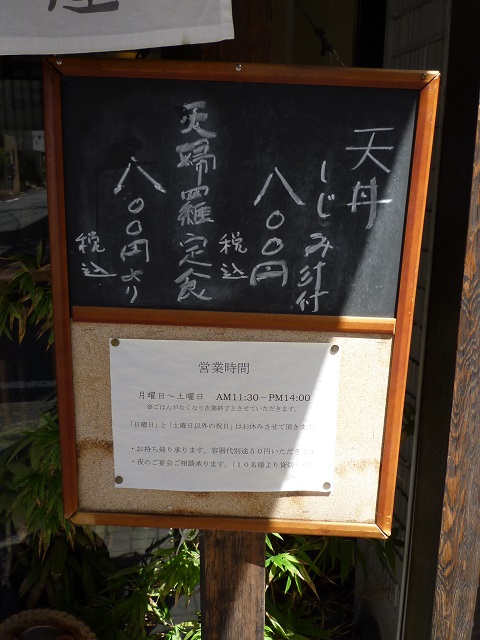 天丼
しじみ汁付
八〇〇円
税込
天婦羅定食
八〇〇円より
税込
営業時間
月曜日～土曜日 AM11:30－PM14:00
※ごはんがなくなり次第終了とさせていただきます。
「日曜日」と「土曜日以外の祝日」はお休みさせて頂きます
・お持ち帰り承ります。容器代別途50円いただきます
・夜のご宴会ご相談承ります。(10名様より貸切